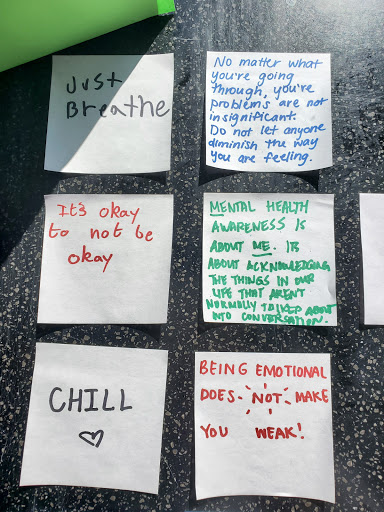 Just
Breathe
No matter what
you're going
through, you're
problems are not
insignificant.
Do not let anyone
diminish the way
you are feeling.
It's okay
to not be
okay
MENTAL HEALTH
AWARENESS IS
ABOUT ME. ITS
ABOUT ACKNOWLEDGING
THE THINGS IN OUR
LIFE THAT AREN'T
NORMALLY TALKED ABOUT
INTO CONVERSATION.
CHILL
BEING EMOTIONAL
DOES NOT MAKE
YOU WEAK!